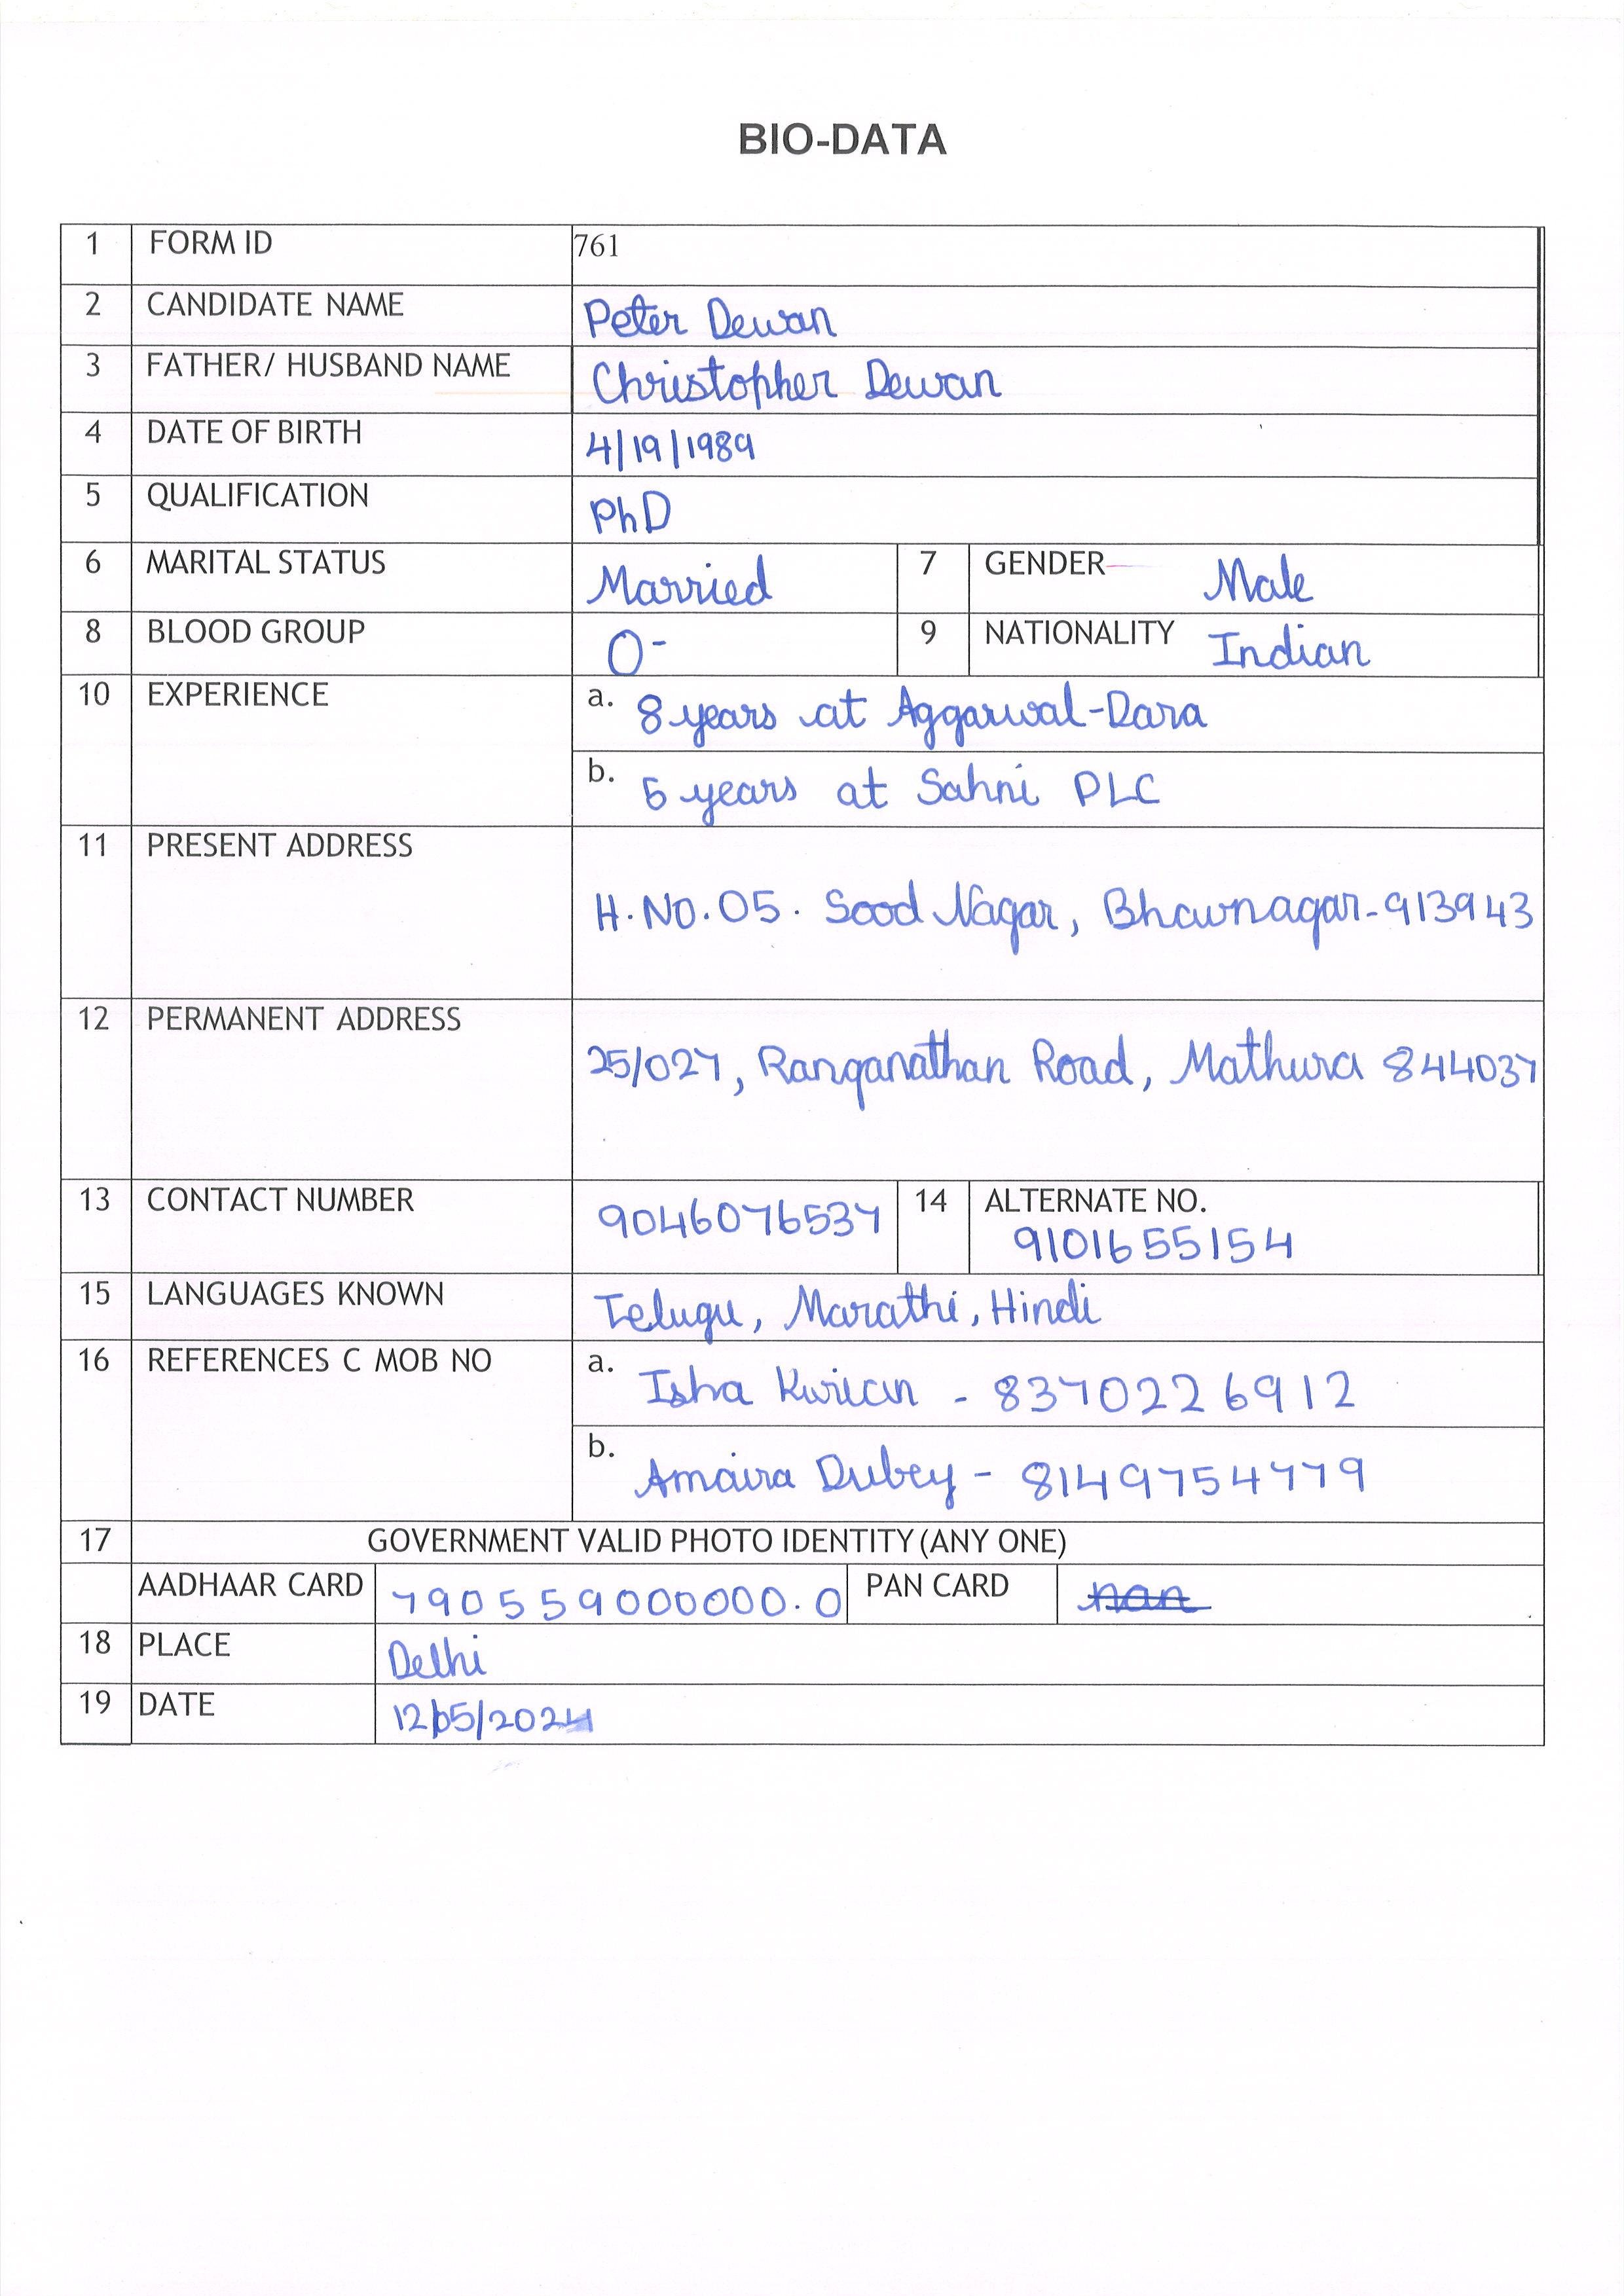 BIO-DATA
1 FORM ID 761
2 CANDIDATE NAME Peter Dewan
3 FATHER/ HUSBAND NAME Christopher Dewan
4 DATE OF BIRTH 4/19/1989
5 QUALIFICATION PhD
6 MARITAL STATUS Married 7 GENDER Male
8 BLOOD GROUP O- 9 NATIONALITY Indian
10 EXPERIENCE a. 8 years at Aggarwal-Dara
b. 5 years at Sahni PLC
11 PRESENT ADDRESS
H.No.05. Sood Nagar, Bhavnagar-913943
12 PERMANENT ADDRESS
25/027, Ranganathan Road, Mathura 844037
13 CONTACT NUMBER 9046076537 14 ALTERNATE NO.
9101655154
15 LANGUAGES KNOWN Telugu, Marathi, Hindi
16 REFERENCES C MOB NO a. Isha Kurian - 8370226912
b. Amaira Dubey - 8149754779
17 GOVERNMENT VALID PHOTO IDENTITY (ANY ONE)
AADHAAR CARD 790559000000.0 PAN CARD nan
18 PLACE Delhi
19 DATE 12/05/2024